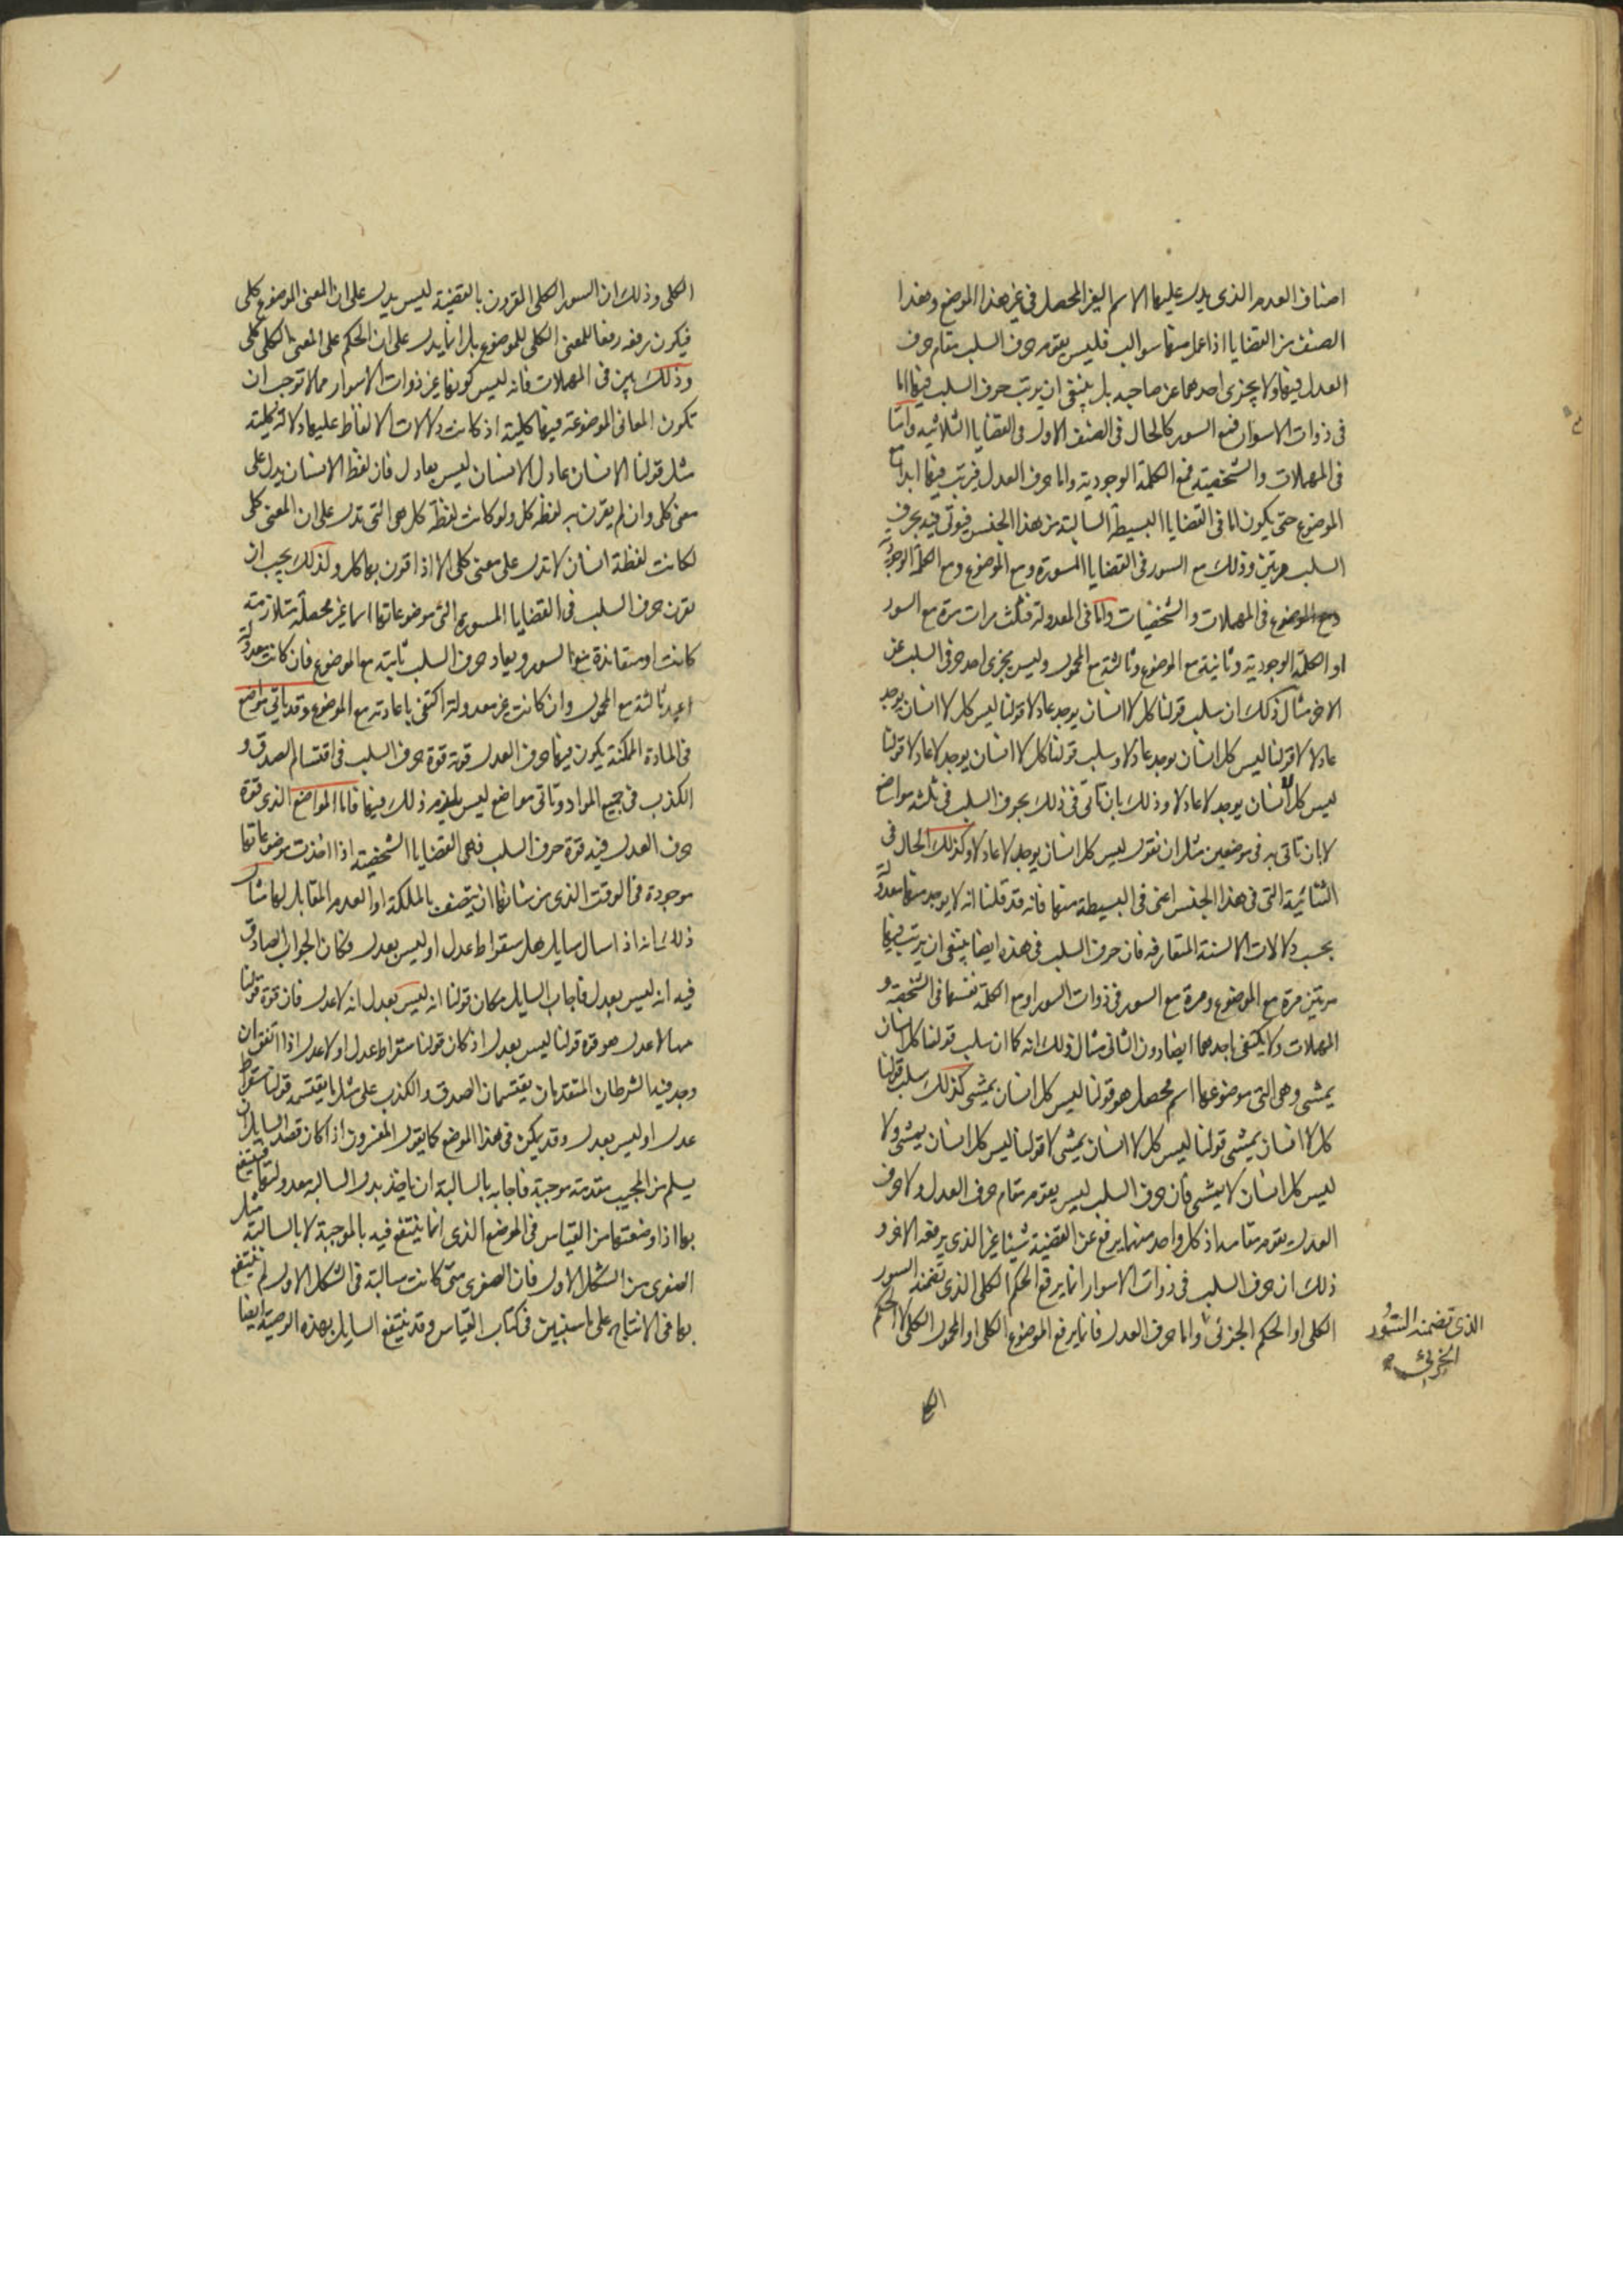 اصناف العدم الذى يدل عليها الاسم الغير المحصل فى غير هذا الموضع وهذا
الصنف من القضايا اذا عمل منها سوالب فليس يقوم حرف السلب مقام حرف
العدل فيها ولا يجزى احدهما عن صاحبه بل ينبغى ان يرتب حرف السلب فيها اما
فى ذوات الاسوار فمع السور كالحال فى الصنف الاول فى القضايا الثلاثيه واما
فى المهملات والشخصية فمع الكلمة الوجودية واما حرف العدل فيرتب فيها ابدا مع
الموضوع حتى يكون اما فى القضايا البسيطة السالبة من هذا الجنس فيوتى فيه بحرف
السلب مرتين وذلك مع السور فى القضايا المسورة ومع الموضوع ومع الكلمة الوجودية
ومع الموضوع فى المهملات والشخصيات واما فى المعدولة فثلث مرات مرة مع السور
او الكلمة الوجودية وثانية مع الموضوع وثالثة مع المحمول وليس يجزى احد حرفى السلب عن
الاخر مثال ذلك ان سلب قولنا كل لا انسان يوجد عادلا قولنا ليس كل لا انسان يوجد
عادلا لا قولنا ليس كل انسان يوجد عادلا وسلب قولنا كل لا انسان يوجد لا عادلا قولنا
ليس كل لا انسان يوجد لا عادلا وذلك بان ناتى فى ذلك بحرف السلب فى ثلثة مواضع
لا بان ناتى به فى موضعين مثل ان نقول ليس كل انسان يوجد لا عادلا وكذلك الحال فى
الثنائية التى فى هذا الجنس اعنى فى البسيطة منها فانه قد قلنا انه لا يوجد منها معدولة
بحسب دلالات الالسنة المتعارفه فان حرف السلب فى هذه ايضا ينبغى ان يرتب فيها
مرتين مرة مع الموضوع ومرة مع السور فى ذوات السور او مع الكلمة نفسها فى الشخصية و
المهملات ولا يكتفى باحدهما ايضا دون الثانى مثال ذلك انه كما ان سلب قولنا كل انسان
يمشى وهى التى موضوعها اسم محصل هو قولنا ليس كل انسان يمشى كذلك سلب قولنا
كل لا انسان يمشى قولنا ليس كل لا انسان يمشى لا قولنا ليس كل انسان يمشى ولا
ليس كل انسان لا يمشى فان حرف السلب ليس يقوم مقام حرف العدل ولا حرف
العدل يقوم مقامه اذ كل واحد منهما يرفع عن القضية شيئا غير الذى يرفعه الاخر و
ذلك ان حرف السلب فى ذوات الاسوار انما يرفع الحكم الكلى الذى تضمنه السور
الكلى او الحكم الجزئى واما حرف العدل فانما يرفع الموضوع الكلى او المحمول الكلى لا الحكم
الذى تضمنه السور
الجزئى صح
الكلى وذلك ان السور الكلى المقرون بالقضية ليس يدل على ان المعنى الموضوع كلى
فيكون رفعه رفعا للمعنى الكلى للموضوع بل انما يدل على ان الحكم على المعنى الكلى كلى
وذلك بين فى المهملات فانه ليس كونها غير ذوات الاسوار مما لا توجب ان
تكون المعانى الموضوعة فيها كلية اذ كانت دلالات الالفاظ عليها دلالة كلية
مثل قولنا الانسان عادل الانسان ليس بعادل فان لفظ الانسان يدل على
معنى كلى وان لم يقرن به لفظة كل ولو كانت لفظة كل هى التى تدل على ان المعنى كلى
لكانت لفظة انسان لا تدل على معنى كلى الا اذا قرن بها كل ولذلك يجب ان
يقرن حرف السلب فى القضايا المسورة التى موضوعاتها اسما غير محصلة متلازمة
كانت او متعاندة مع السور ويعاد حرف السلب ثابته مع الموضوع فان كانت معدولة
اعيد ثالثة مع المحمول وان كانت غير معدولة اكتفى باعادته مع الموضوع وقد ياتى مواضع
فى المادة الممكنة يكون فيها حرف العدل قوته قوة حرف السلب فى اقتسام الصدق و
الكذب فى جميع المواد وتاتى مواضع ليس يلزم ذلك فيها فاما المواضع الذى قوة
حرف العدل فيه قوة حرف السلب فهى القضايا الشخصية اذا اخذت موضوعاتها
موجودة فى الوقت الذى من شانها ان يتصف بالملكة او العدم المقابل لها مثال
ذلك انه اذا سال سايل هل سقراط عدل او ليس بعدل فكان الجواب الصادق
فيه انه ليس بعدل فاجاب السايل مكان قولنا انه ليس بعدل انه لا عدل فان قوة قولنا
هو لا عدل هو قوة قولنا ليس بعدل اذ كان قولنا سقراط عدل او لا عدل اذا اتفق ان
وجد فيه الشرطان المتقدمان يقتسمان الصدق والكذب على مثل ما يقتسمه قولنا سقراط
عدل او ليس بعدل وقد يمكن فى هذا الموضع كما يقول المفسرون اذا كان قصد السايل ان
يسلم من المجيب مقدمة موجبة فاجابه بالسالبة ان ياخذ بدل السالبه معدولتها فينتفع
بها اذا وضعتها من القياس فى الموضع الذى انما ينتفع فيه بالموجبة لا بالسالبة مثل
الصغرى من الشكل الاول فان الصغرى متى كانت سالبة فى الشكل الاول لم ينتفع
بها فى الانتاج على ما سنبين فى كتاب القياس وقد ينتفع السايل بهذه الوصية ايضا